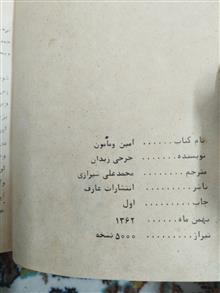 نام کتاب . . . . . . امین ومأمون
نویسنده . . . . . . . . جرجی زیدان
مترجم . . . . . . . محمدعلی شیرازی
ناشر . . . . . . . . انتشارات عارف
چاپ . . . . . . . . . اول
بهمن ماه . . . . . . ۱۳۶۲
تیراژ . . . . . . . . . ۵۰۰۰ نسخه